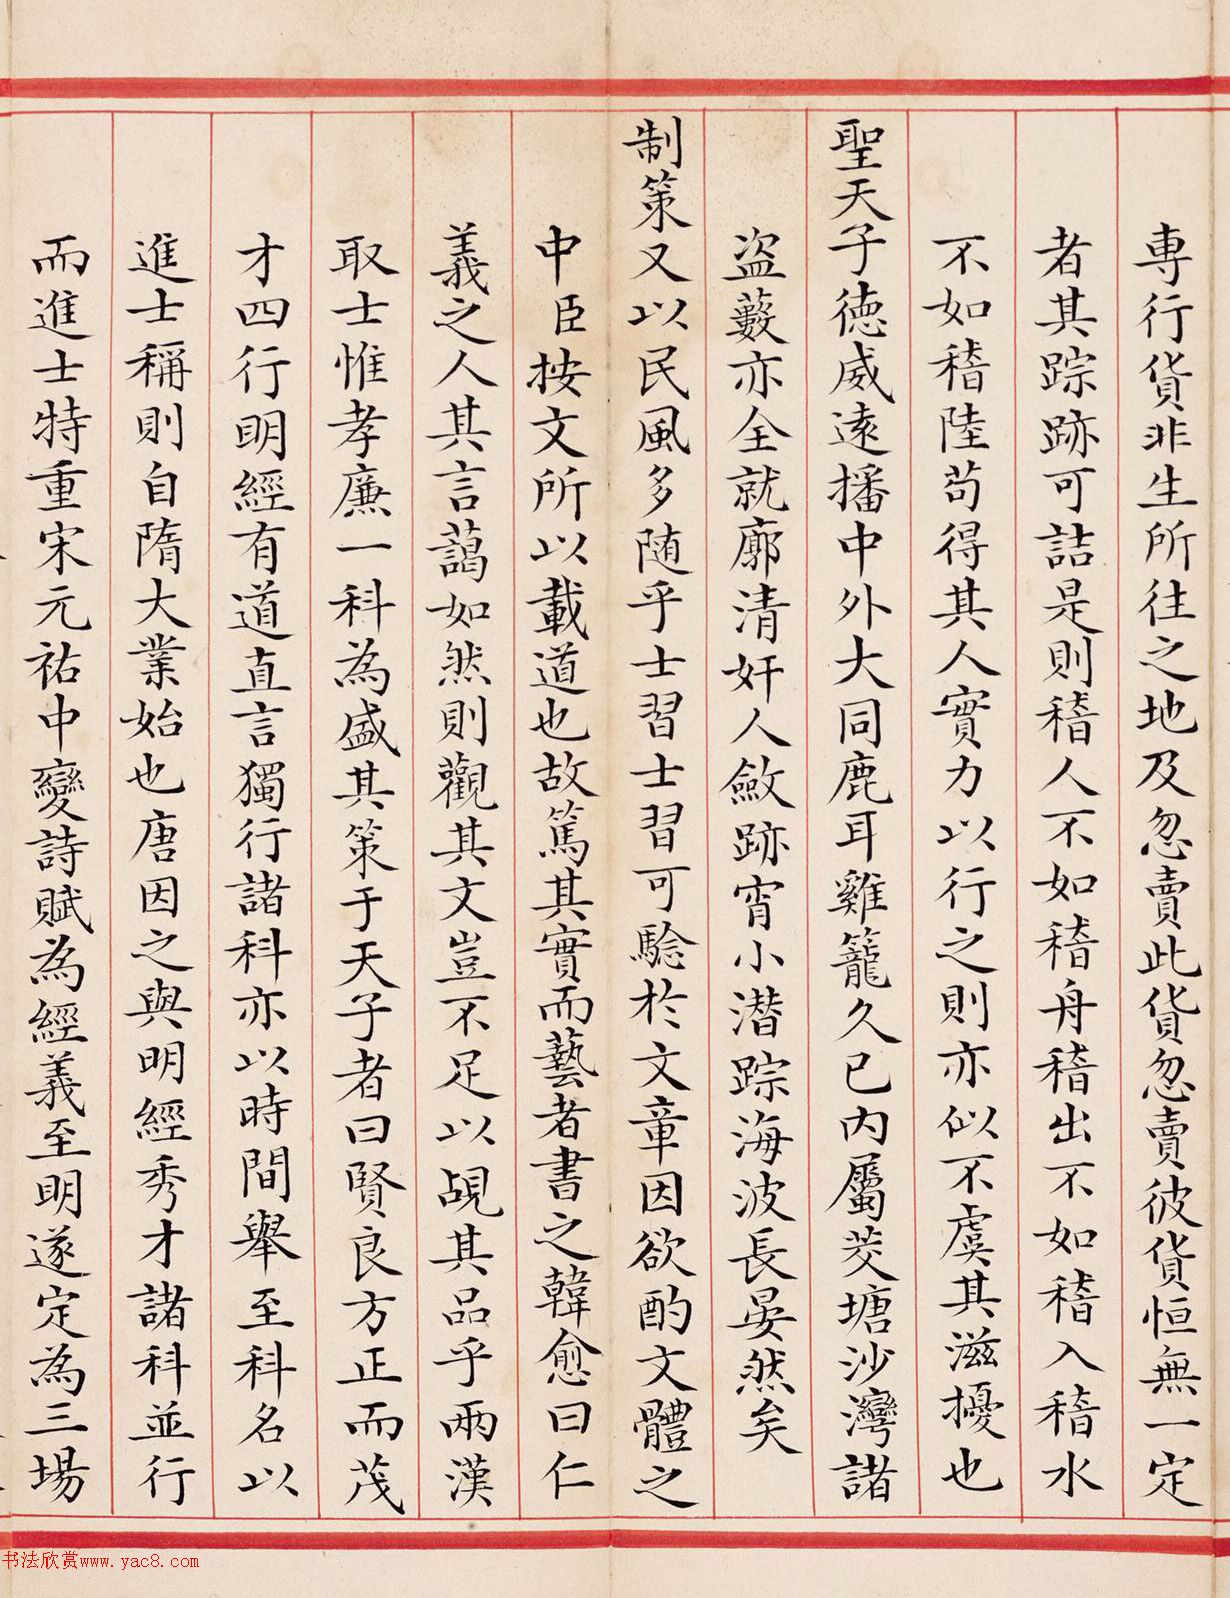 專行貨非生所往之地及忽賣此貨忽賣彼貨恒無一定
者其踪跡可詰是則稽人不如稽舟稽出不如稽入稽水
不如稽陸茍得其人實力以行之則亦似不虞其滋擾也
聖天子德威遠播中外大同鹿耳雞籠久已內屬茭塘沙灣諸
盜藪亦全就廓清奸人斂跡宵小潜踪海波長晏然矣
制策又以民風多随乎士習士習可騐於文章因欲酌文體之
中臣按文所以載道也故篤其實而藝者書之韓愈曰仁
義之人其言藹如然則觀其文豈不足以覘其品乎兩漢
取士惟孝廉一科為盛其策于天子者曰賢良方正而茂
才四行明經有道直言獨行諸科亦以時間舉至科名以
進士稱則自隋大業始也唐因之與明經秀才諸科並行
而進士特重宋元祐中變詩賦為經義至明遂定為三場
书法欣赏www.yac8.com